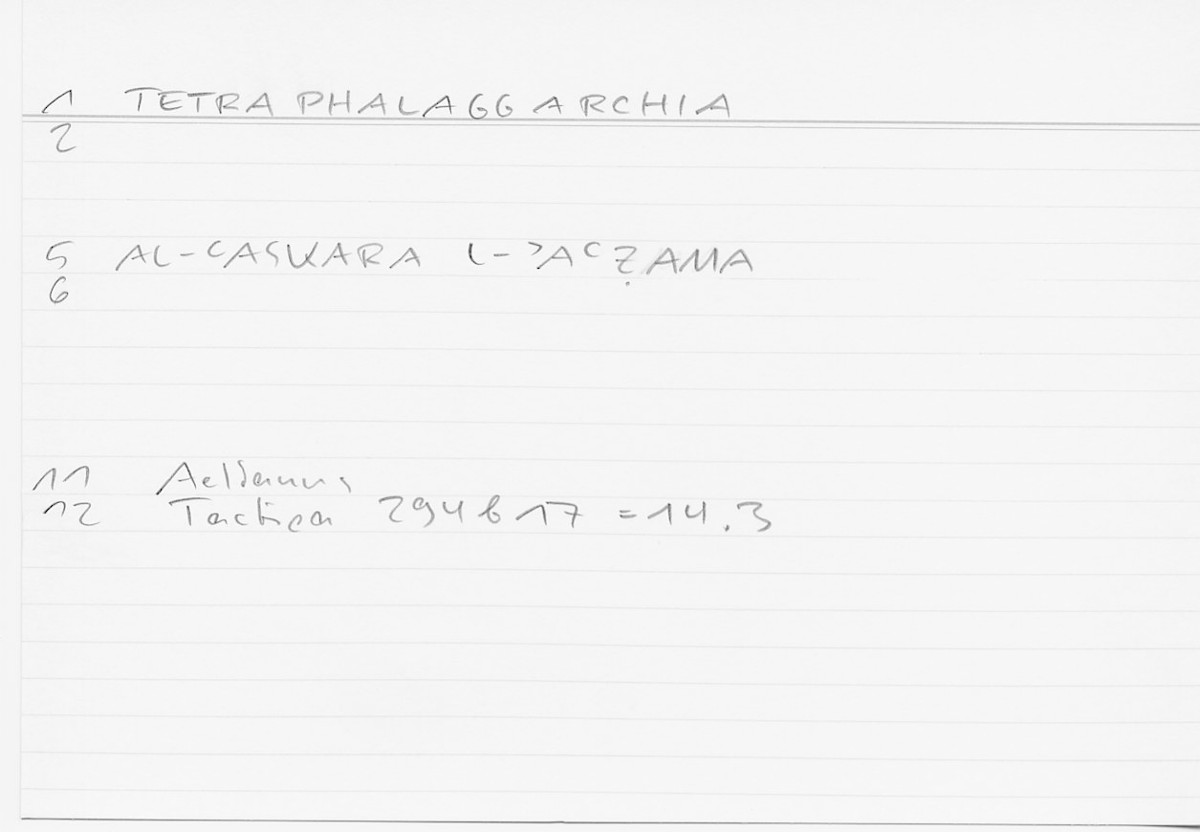 1 TETRAPHALAGGARCHIA
2
5 AL-ʿASKARA L-ʾAʿẒAMA
6
11 Aelianus
12 Tactica 294b17 = 14.3